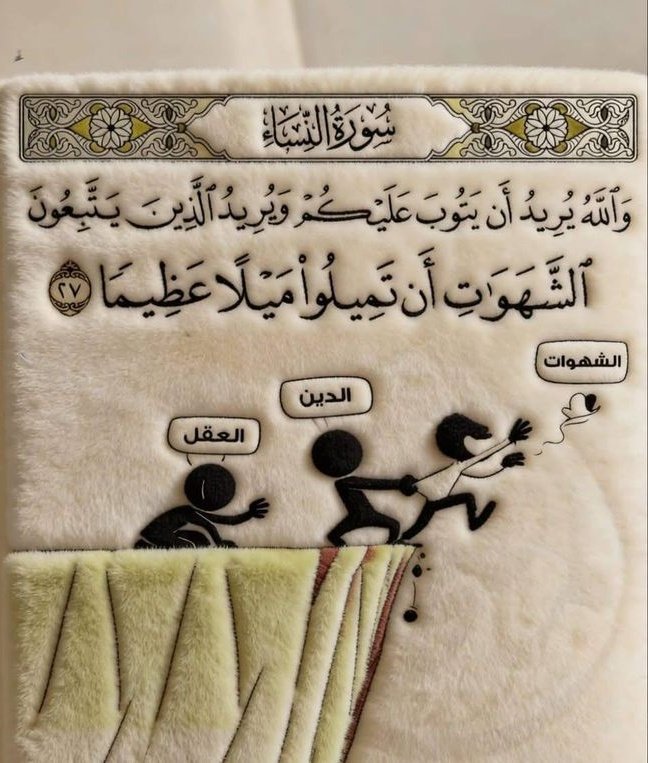 سُورَةُ النِّسَاءِ
وَٱللَّهُ يُرِيدُ أَن يَتُوبَ عَلَيْكُمْ وَيُرِيدُ ٱلَّذِينَ يَتَّبِعُونَ
ٱلشَّهَوَٰتِ أَن تَمِيلُوا۟ مَيْلًا عَظِيمًا ٢٧
الشهوات
الدين
العقل